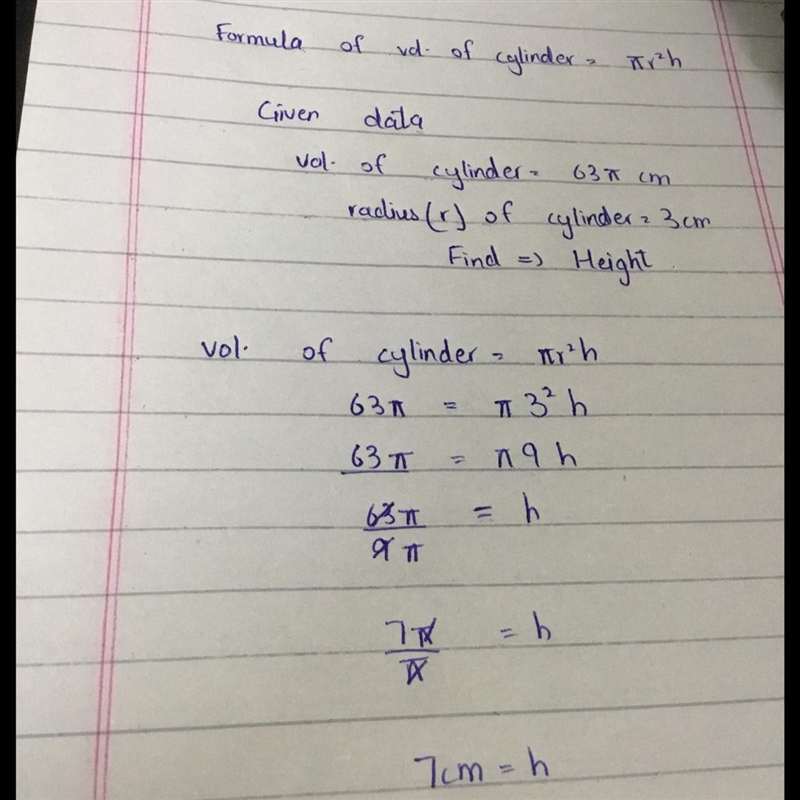 Formula of vol. of cylinder = πr²h
Given data
vol. of cylinder = 63π cm
radius(r) of cylinder = 3cm
Find => Height
vol. of cylinder = πr²h
63π = π 3² h
63π = π 9 h
63π/9π = h
7π/π = h
7cm = h